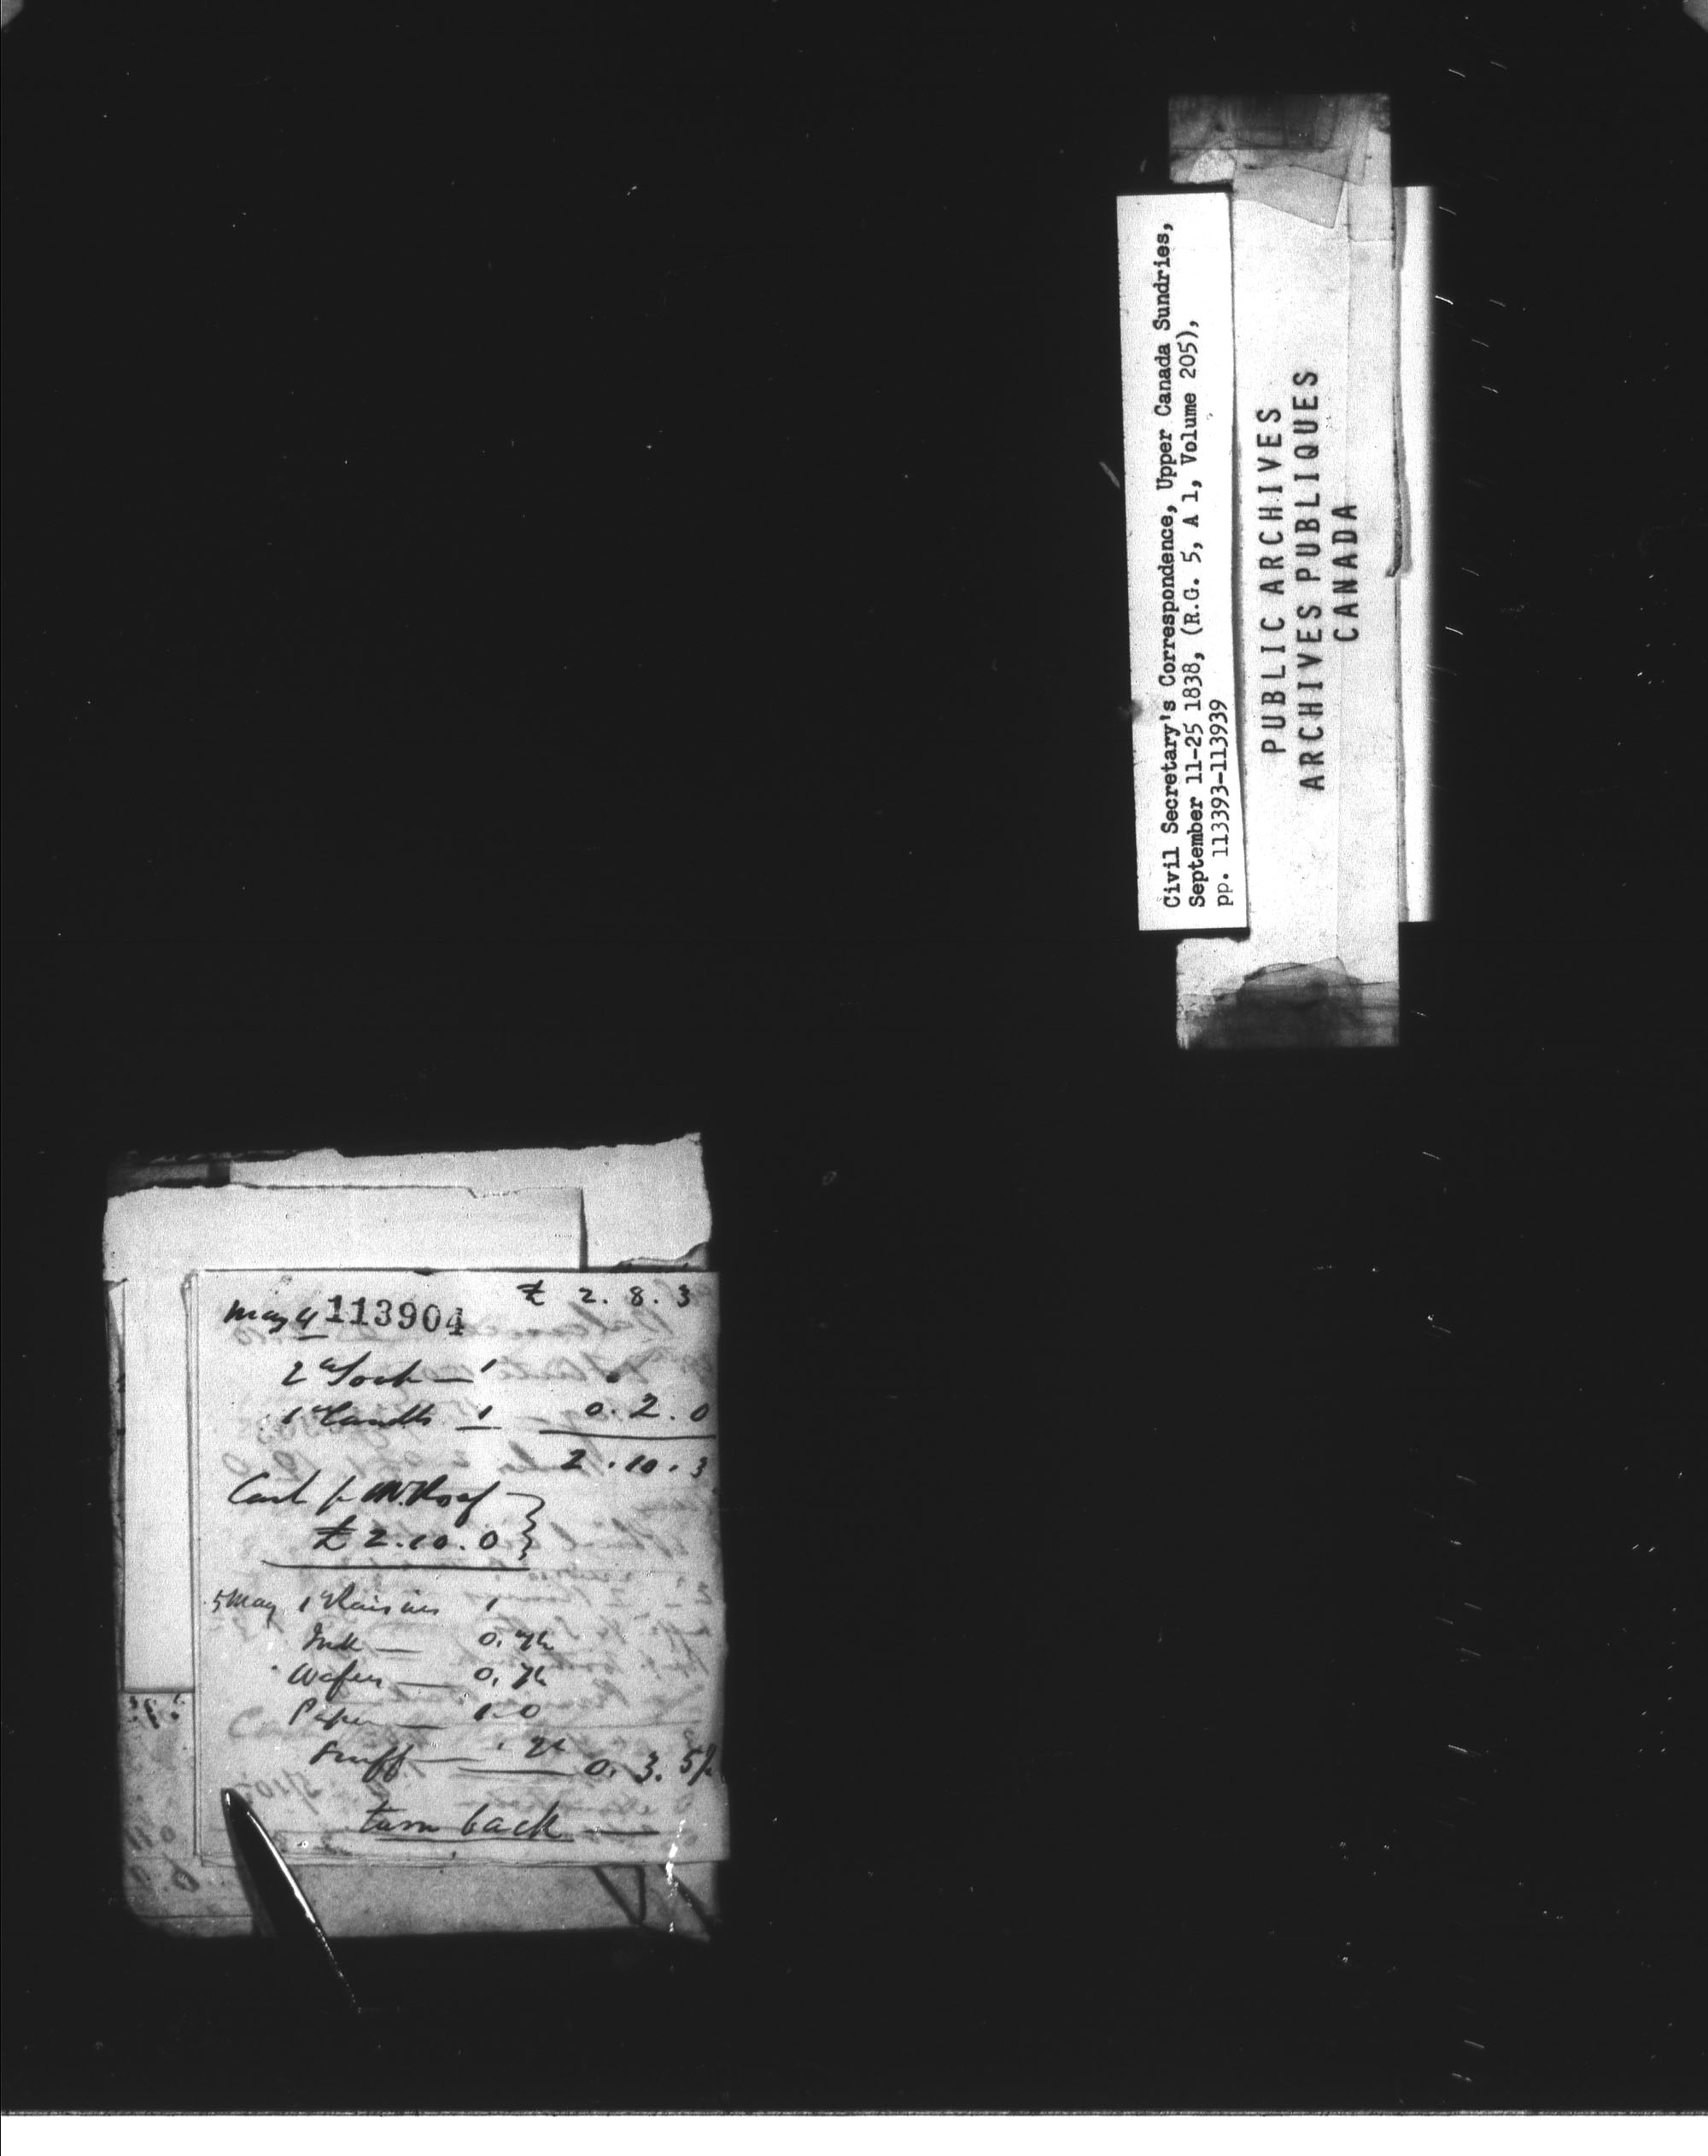 Civil Secretary's Correspondence, Upper Canada Sundries,
September 11-25 1838, (R.G. 5, A 1, Volume 205),
pp. 113393-113939
PUBLIC ARCHIVES
ARCHIVES PUBLIQUES
CANADA
£ 2. 8. 3
May 4 113904
2 — 1
1 1 0. 2. 0
2. 10. 3
£ 2. 10. 0
5 May 1 Raisins 1
Ink —
Wafers —
Paper — 1. 0
Snuff — 0. 3.
turn back —